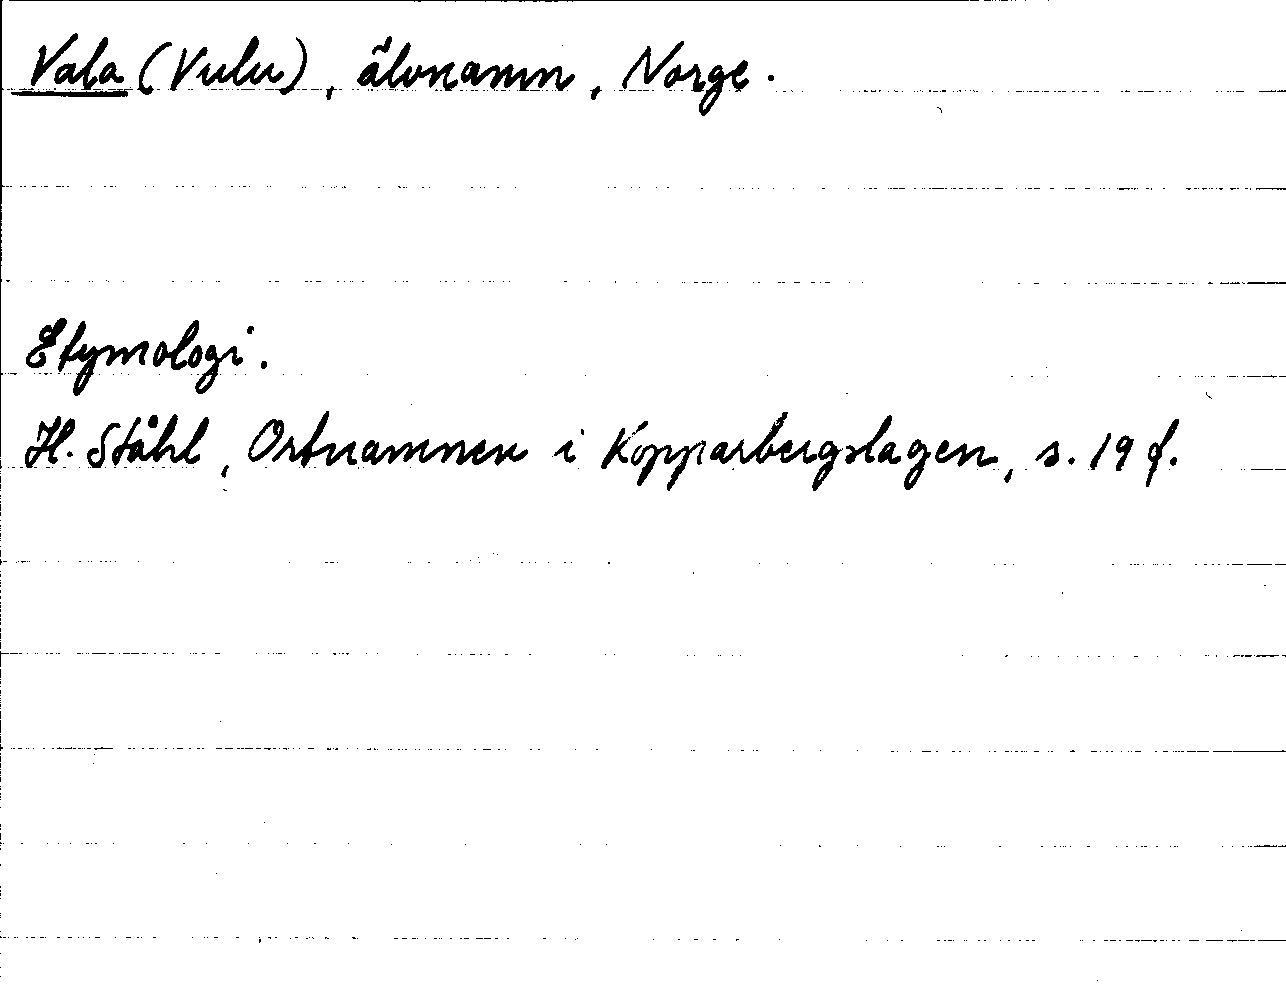 Vala (Vulu), älvnamn, Norge.
Etymologi.
H. Ståhl, Ortnamnen i Kopparbergslagen, s. 19 f.